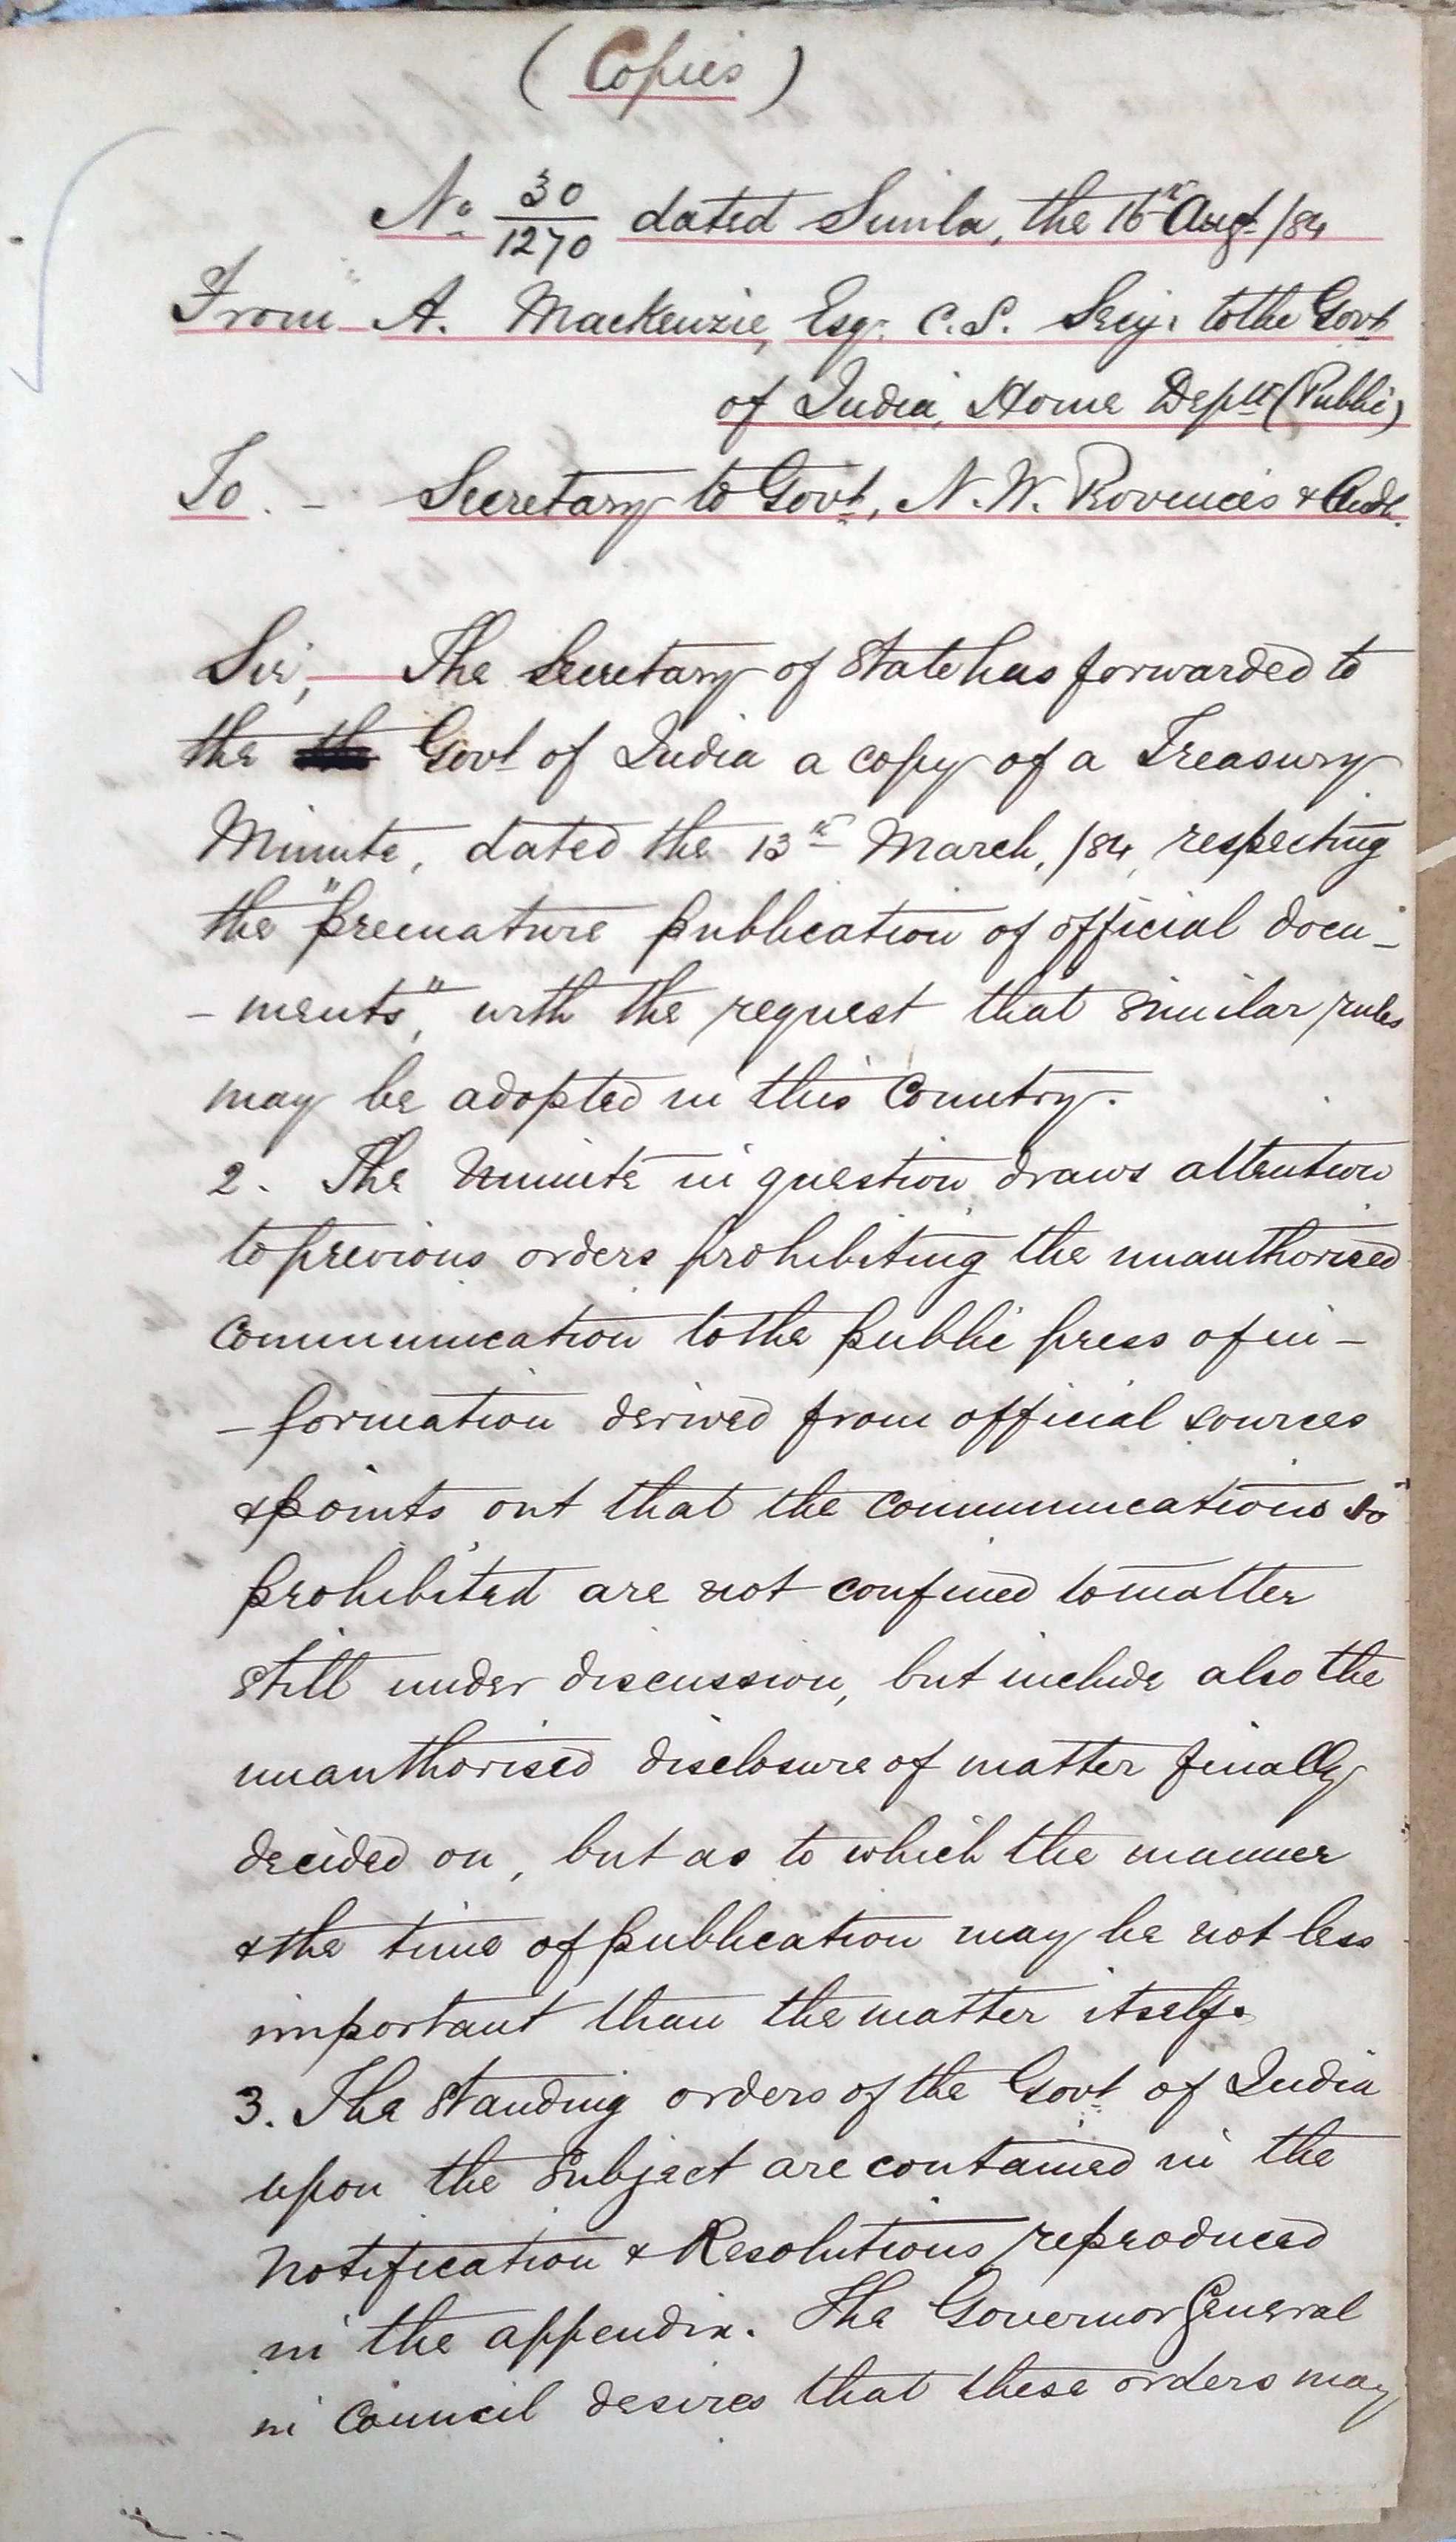 (Copies)
No. 30/1270 dated Simla, the 16th Augt /84
From A. Mackenzie, Esq. C.S. Secy. to the Govt
of India, Home Deptt (Public)
To. - Secretary to Govt, N.W. Provinces & Oudh.
Sir, The Secretary of State has forwarded to
the Govt of India a copy of a Treasury
Minute, dated the 13th March, /84, respecting
the "premature publication of official docu-
-ments", with the request that similar rules
may be adopted in this Country.
2. The Minute in question draws attention
to previous orders prohibiting the unauthorised
communication to the public press of in-
-formation derived from official sources
& points out that the communications so
prohibited are not confined to matter
still under discussion, but include also the
unauthorised disclosure of matter finally
decided on, but as to which the manner
& the time of publication may be not less
important than the matter itself.
3. The standing orders of the Govt. of India
upon the Subject are contained in the
Notification & Resolutions reproduced
in the appendix. The Governor General
in Council desires that these orders may